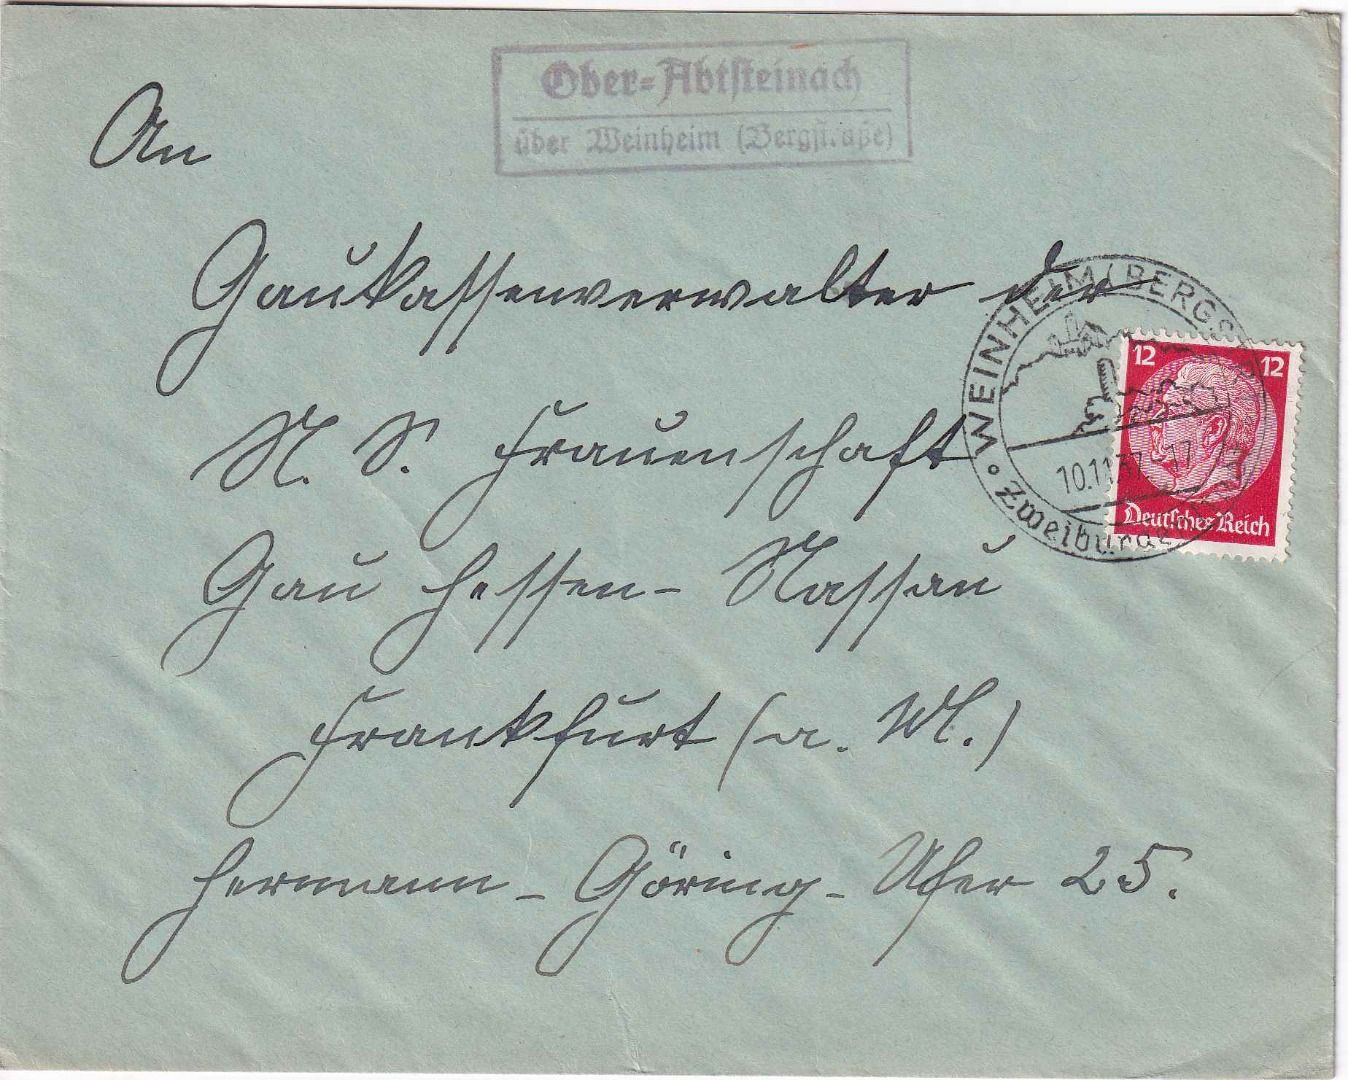 Ober-Abtsteinach
über Weinheim (Bergstraße)
An
Gaukassenverwalter der
N. S. Frauenschaft
Gau Hessen-Nassau
Frankfurt (a. M.)
Hermann-Göring-Ufer 25.
WEINHEIM (BERGS
10.11.37-17
Zweiburgen
12 12
Deutsches Reich